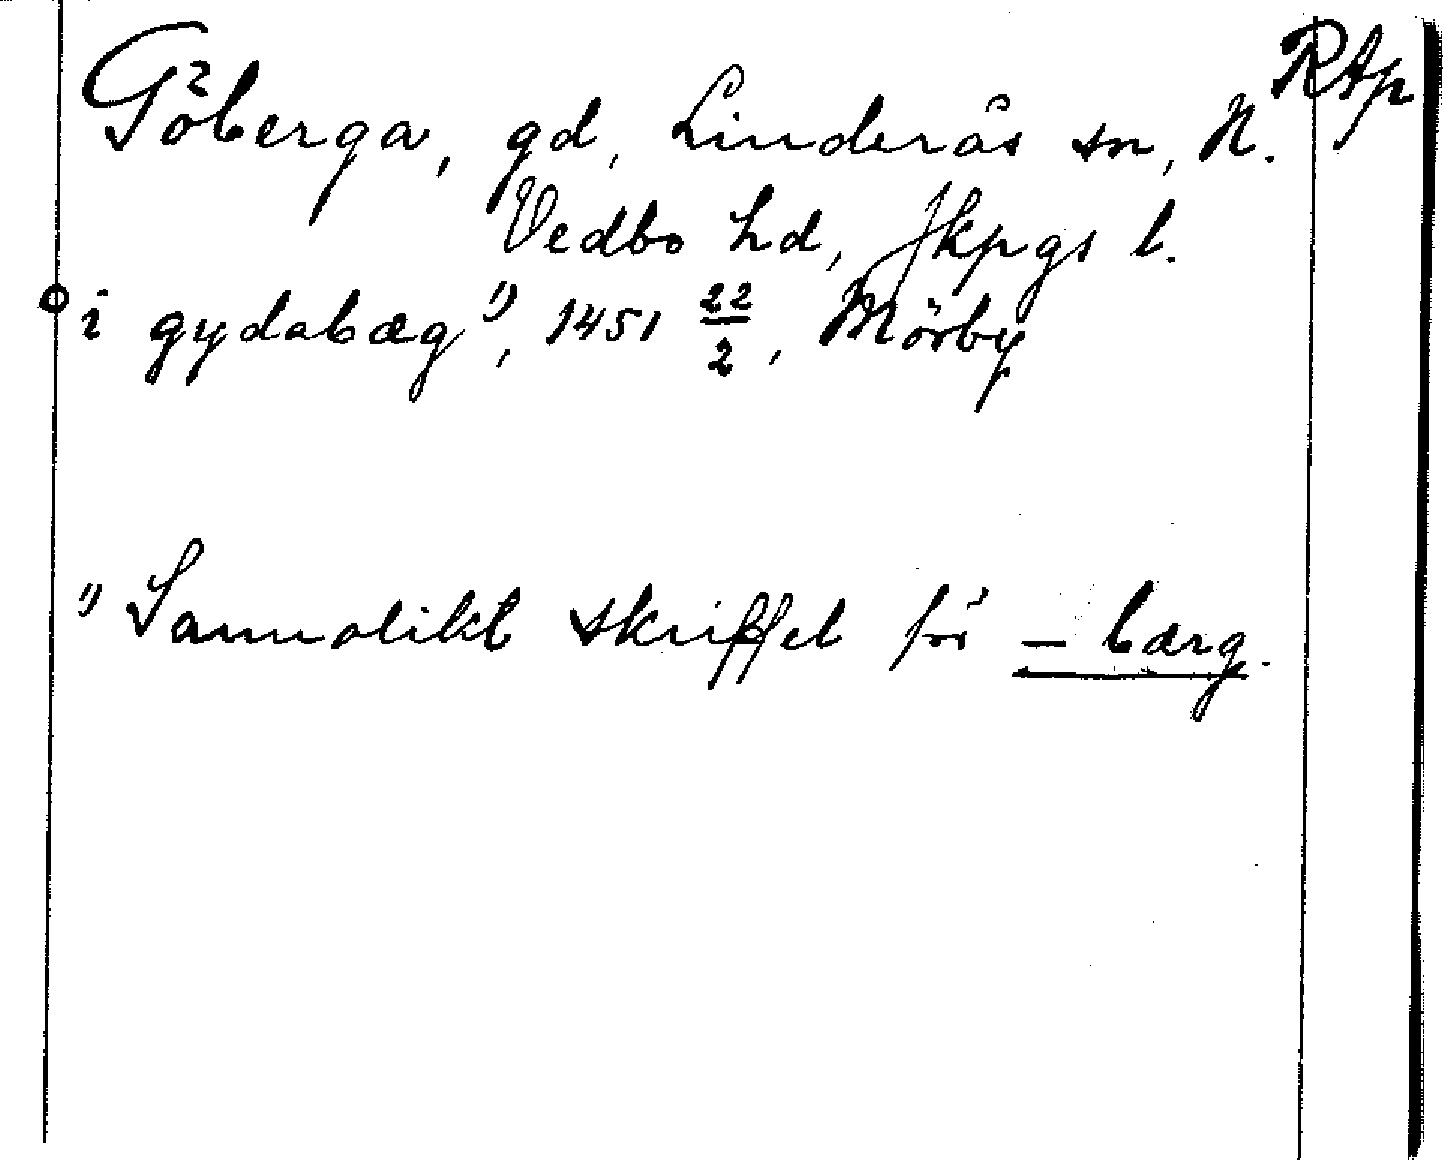 Göberga, gd, Linderås sn, N. RAp
Vedbo hd, Jkpgs l.
i gydabæg ¹⁾, 1451 22/2, Mörby
¹⁾ Sannolikt skriffel för – bærg.